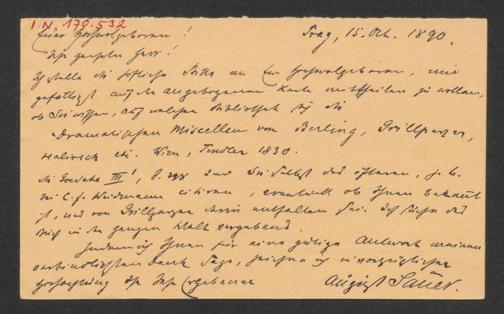 I.N. 179.532
Euer Hochwolgeboren!
Prag, 15. Okt. 1890.
Sehr geehrter Herr!
Ich stelle die höfliche Bitte an Ew Hochwolgeboren, mir
gefälligst auf der angebogenen Karte mittheilen zu wollen,
ob Sie wissen, auf welcher Bibliothek sich die
Dramatischen Miscellen von Berling, Grillparzer,
Halirsch etc. Wien, Tendler 1830.
die Goedeke III¹, und Sie selbst des öfteren, z. B.
bei C. F. Weidmann citieren, eventuell ob Ihnen bekannt
ist, was von Grillparzer darin enthalten sei. Ich suche das
Buch in der ganzen Welt vergebens.
Indem ich Ihnen für eine gütige Antwort meinen
verbindlichsten Dank sage, zeichne ich in vorzüglicher
Hochachtung Ihr sehr Ergebener
August Sauer.